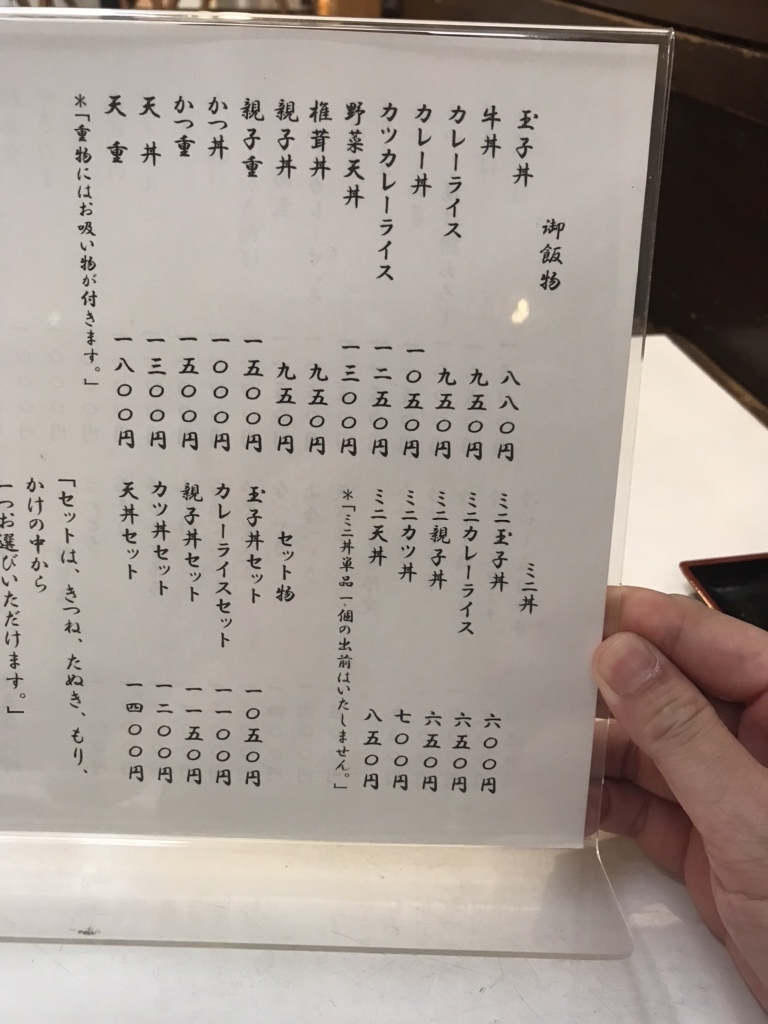 御飯物
玉子丼 八八〇円
牛丼 九五〇円
カレーライス 九五〇円
カレー丼 一〇五〇円
カツカレーライス 一二五〇円
野菜天丼 一三〇〇円
椎茸丼 九五〇円
親子丼 九五〇円
親子重 一五〇〇円
かつ丼 一〇〇〇円
かつ重 一五〇〇円
天丼 一三〇〇円
天重 一八〇〇円
*「重物にはお吸い物が付きます。」
ミニ丼
ミニ玉子丼 六〇〇円
ミニカレーライス 六五〇円
ミニ親子丼 六五〇円
ミニカツ丼 七〇〇円
ミニ天丼 八五〇円
*「ミニ丼単品一個の出前はいたしません。」
セット物
玉子丼セット 一〇五〇円
カレーライスセット 一一〇〇円
親子丼セット 一一五〇円
カツ丼セット 一二〇〇円
天丼セット 一四〇〇円
「セットは、きつね、たぬき、もり、
かけの中から
一つお選びいただけます。」